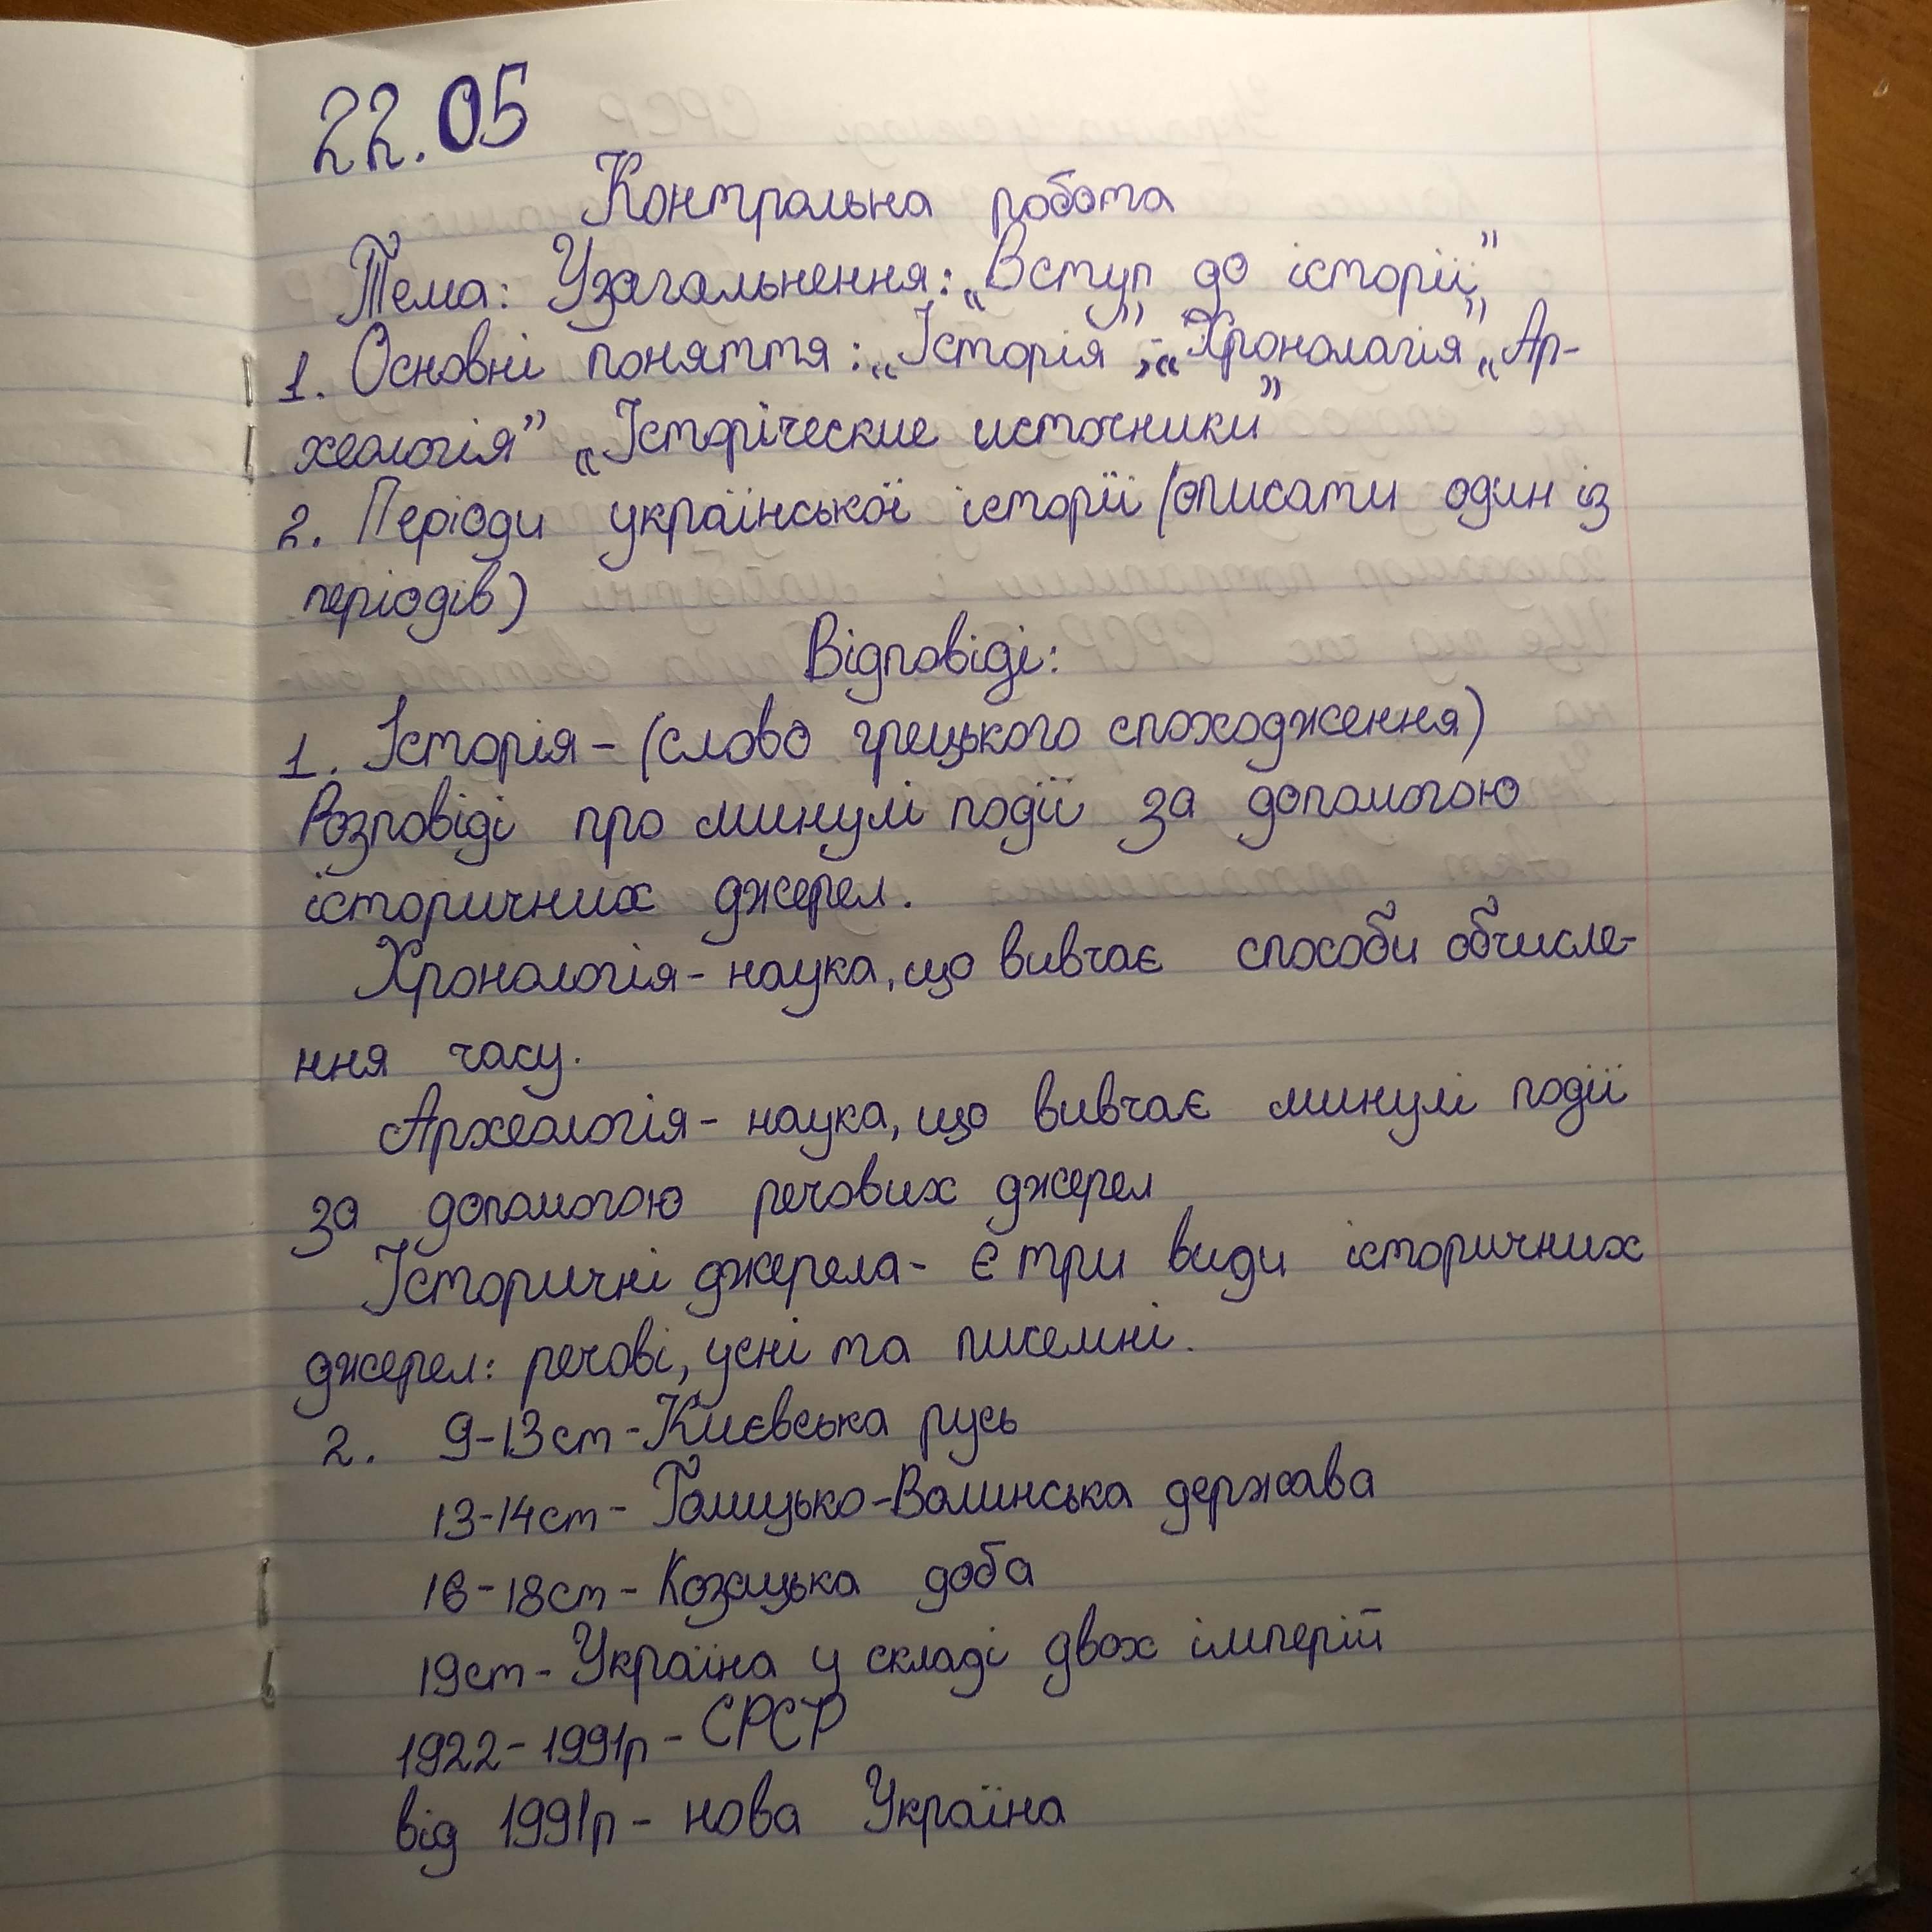 22.05
Контрольна робота
Тема: Узагальнення: „Вступ до історії”
1. Основні поняття: „Історія”, „Хронологія” „Ар-
хеологія” „Історіческие источники”
2. Періоди української історії (описати один із
періодів)
Відповіді:
1. Історія – (слово грецького споходження)
Розповіді про минулі події за допомогою
історичних джерел.
Хронологія – наука, що вивчає способи обчисле-
ння часу.
Археологія – наука, що вивчає минулі події
за допомогою речових джерел
Історичні джерела – є три види історичних
джерел: речові, усні та писемні.
2. 9-13ст - Києвська русь
13-14ст - Галицько-Волинська держава
16-18ст - Козацька доба
19ст - Україна у складі двох імперій
1922-1991р - СРСР
від 1991р - нова Україна